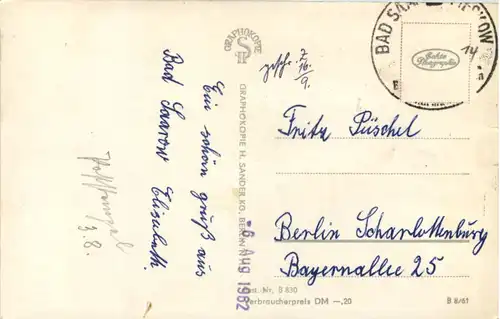 Ein schön gruß aus
Bad Saarow Elisabeth.
3.8.
GRAPHOKOPIE
GRAPHOKOPIE H. SANDER KG. BERLIN
-6 Aug 1962
gesch. 7.
16.
9.
BAD SAAROW-PIESKOW
14
Echte
Photographie
Fritz Püschel
Berlin Scharlottenburg
Bayernallee 25
Best.-Nr. B 830
Verbraucherpreis DM -,20
B 8/61